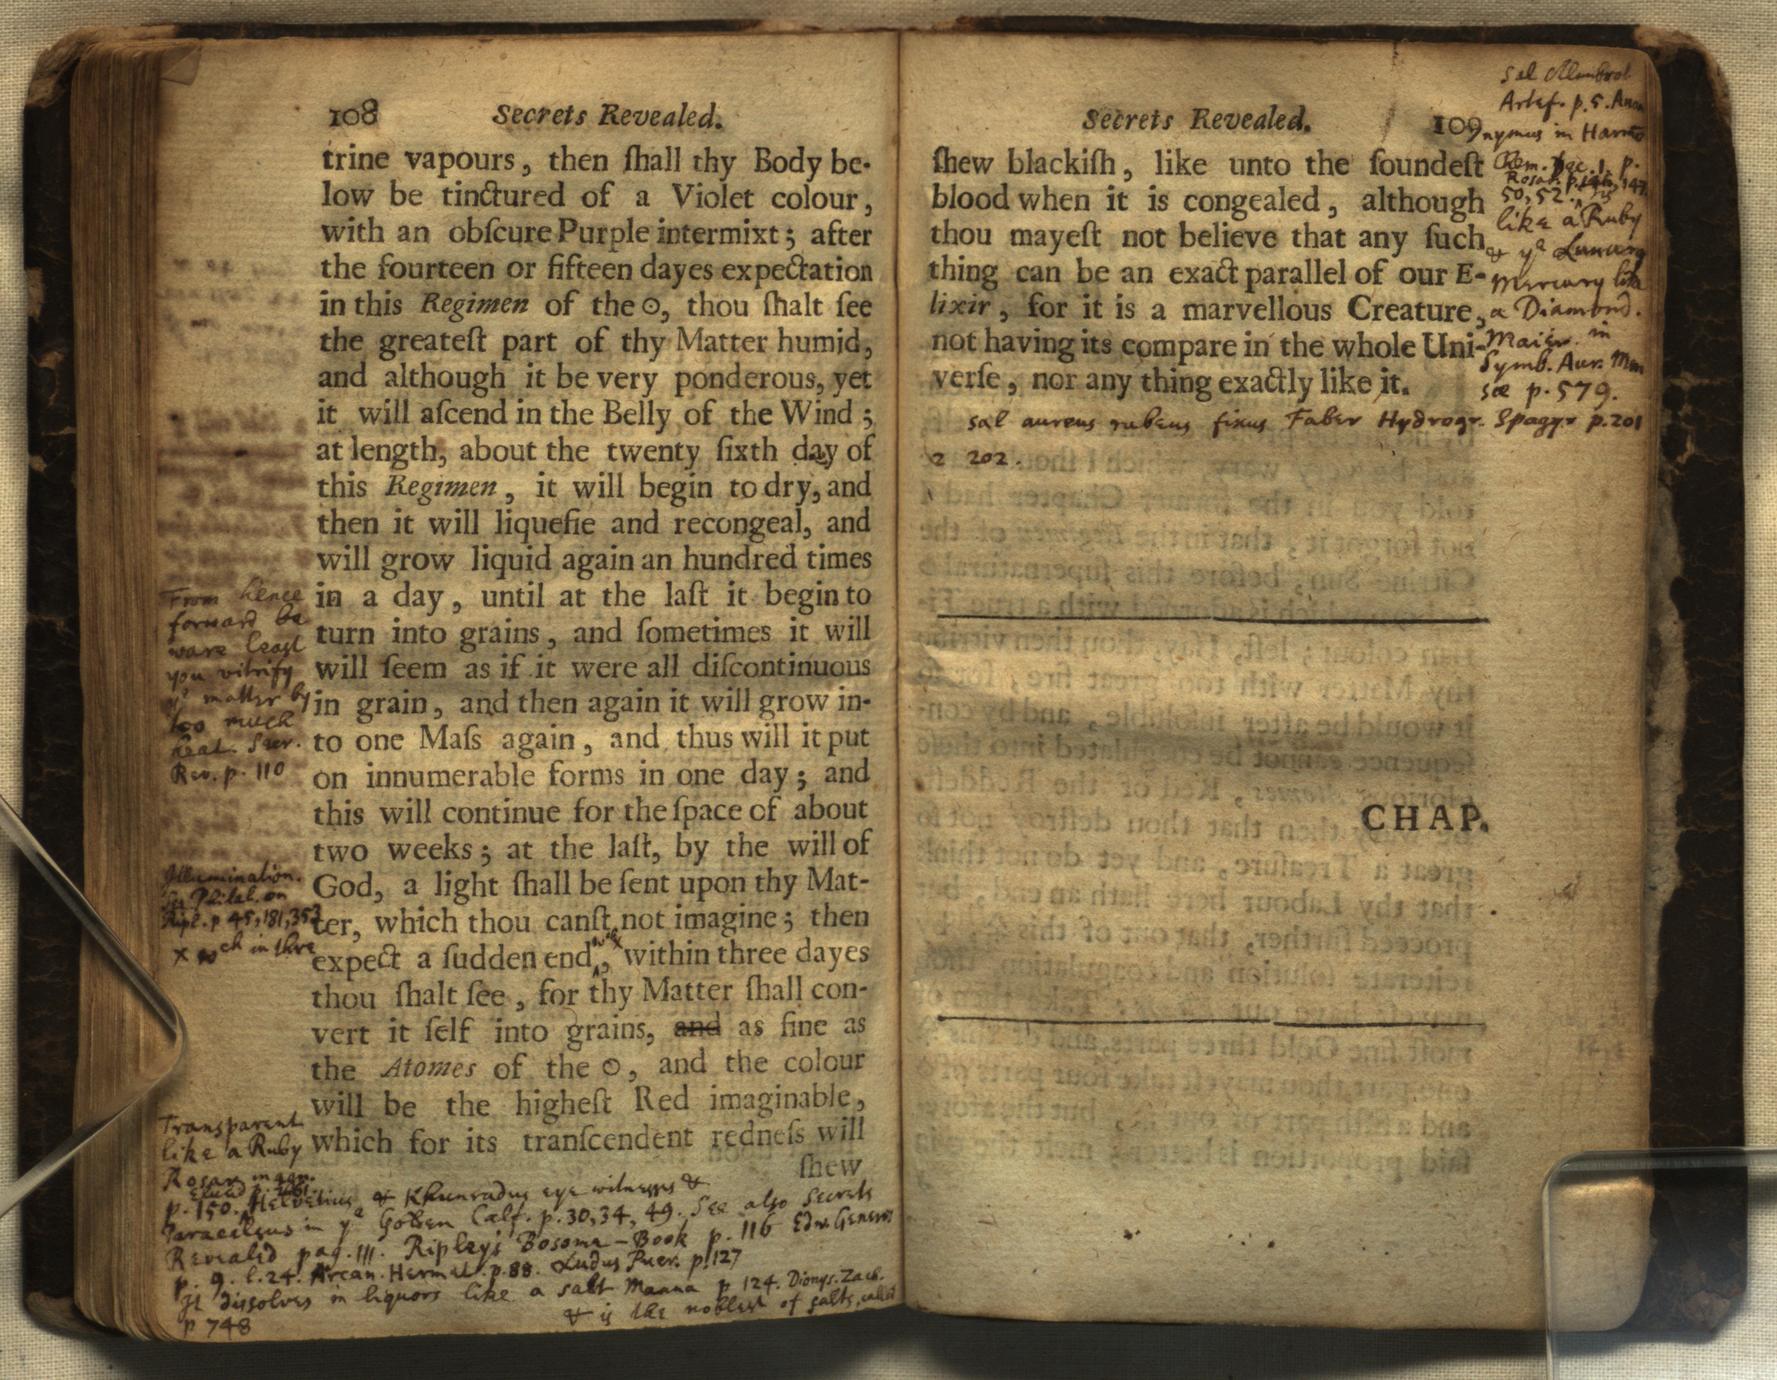 108 Secrets Revealed.
trine vapours, then ſhall thy Body be-
low be tinctured of a Violet colour,
with an obſcure Purple intermixt; after
the fourteen or fifteen dayes expectation
in this Regimen of the ☉, thou ſhalt ſee
the greateſt part of thy Matter humid,
and although it be very ponderous, yet
it will aſcend in the Belly of the Wind;
at length, about the twenty ſixth day of
this Regimen, it will begin to dry, and
then it will liquefie and recongeal, and
will grow liquid again an hundred times
in a day, until at the laſt it begin to
turn into grains, and ſometimes it will
will ſeem as if it were all diſcontinuous
in grain, and then again it will grow in-
to one Maſs again, and thus will it put
on innumerable forms in one day; and
this will continue for the ſpace of about
two weeks; at the laſt, by the will of
God, a light ſhall be ſent upon thy Mat-
ter, which thou canſt not imagine; then
expect a ſudden end, within three dayes
thou ſhalt ſee, for thy Matter ſhall con-
vert it ſelf into grains, and as fine as
the Atomes of the ☉, and the colour
will be the higheſt Red imaginable,
which for its tranſcendent redneſs will
ſhew
From hence
forward be
ware least
you vitrify
yr matter by
too much
heat. Secr.
Rev. p. 110
Illumination.
Philal. on
Ripl. p 45, 181, 357
x wch in thre
Transparent
like a Ruby
Rosar.
p. 150. Helvetius & Khunradus eye witnesses &
Paracelsus in ye Golden Calf. p. 30, 34, 49. See also Secrets
Revealed pag. 111. Ripley's Bosome-Book p. 116 Edw. Generos
p. 9. l. 24. Arcan. Hermet. p. 88. Ludus Puer. p. 127
It dissolves in liquors like a salt Manna p 124. Dionys. Zach.
p 748 & is the noblest of salts, called
Secrets Revealed. 109
ſhew blackiſh, like unto the ſoundeſt
blood when it is congealed, although
thou mayeſt not believe that any ſuch
thing can be an exact parallel of our E-
lixir, for it is a marvellous Creature,
not having its compare in the whole Uni-
verſe, nor any thing exactly like it.
sal Alembrot
Artef. p. 5. Ano
nymus in Harmo
p.
Rosar. p. 147
50, 52. is
like a Ruby
& ye Lunary
Mercury like
a Diamond.
Maier. in
Symb. Aur. Men
sæ p. 579.
sal aureus rubeus fixus Faber Hydrogr. Spagyr p. 201
202.
CHAP.